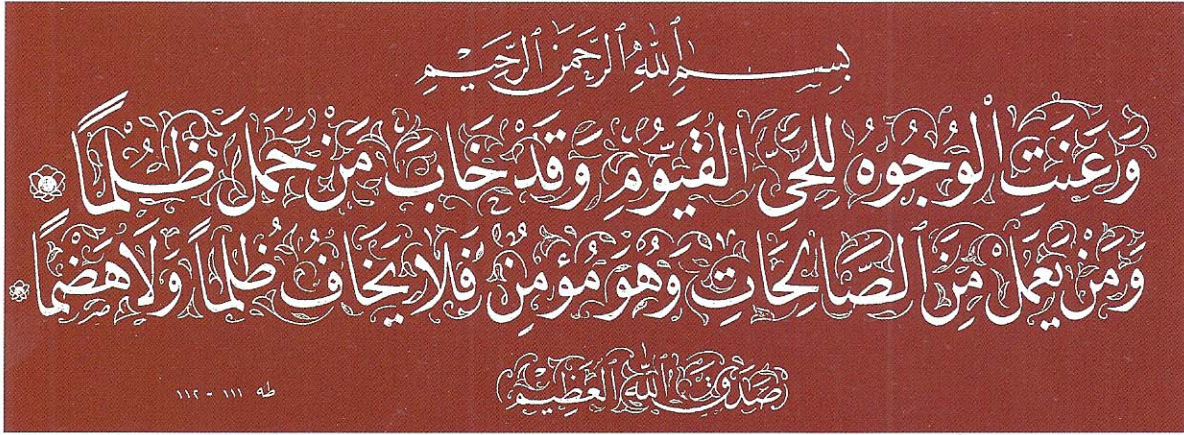 بِسْمِ ٱللَّهِ ٱلرَّحْمَنِ ٱلرَّحِيمِ
وَعَنَتِ الْوُجُوهُ لِلْحَيِّ الْقَيُّومِ وَقَدْ خَابَ مَنْ حَمَلَ ظُلْمًا
وَمَنْ يَعْمَلْ مِنَ ٱلصَّالِحَاتِ وَهُوَ مُؤْمِنٌ فَلَا يَخَافُ ظُلْمًا وَلَا هَضْمًا
صَدَقَ ٱللَّهُ ٱلْعَظِيمُ
طه ١١١ - ١١٢